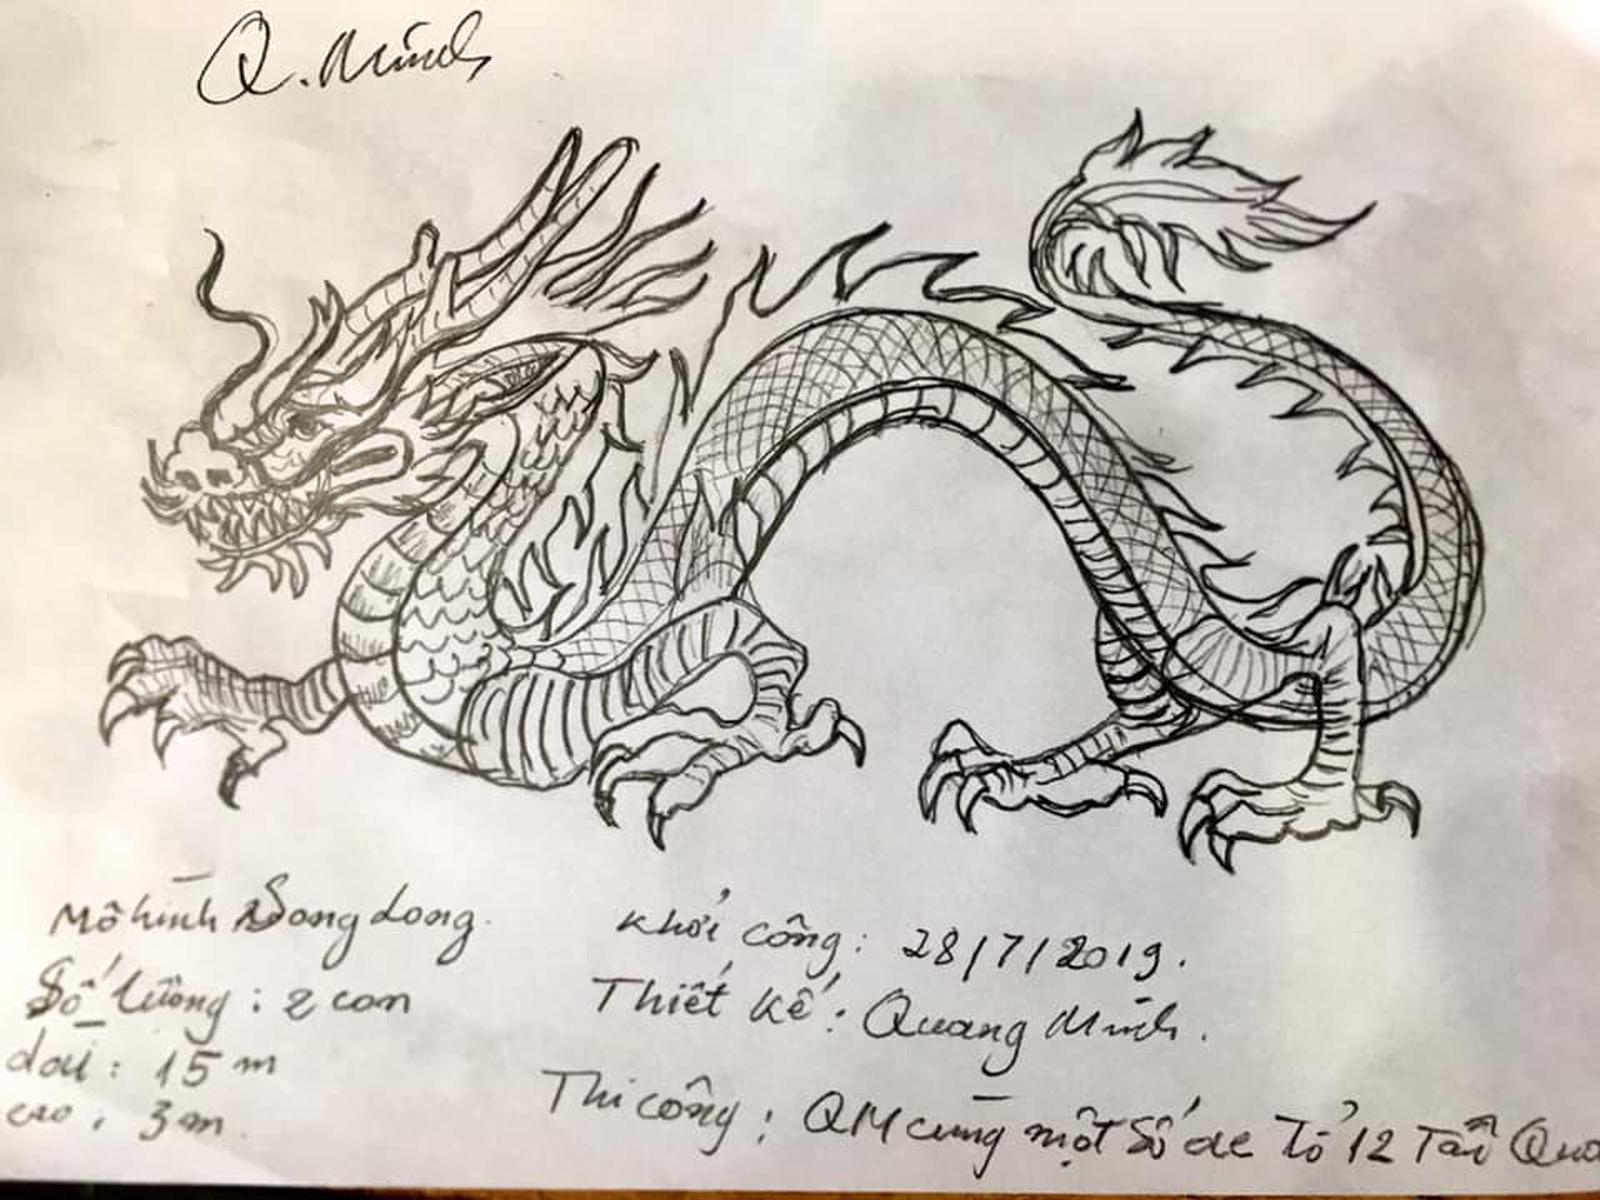 Q. Minh
Mô hình Song Long.
Số lượng : 2 con
dài : 15 m
cao : 3m.
Khởi công : 28/7/2019.
Thiết kế : Quang Minh.
Thi công : QM cùng một số ae Tổ 12 Tân Qua